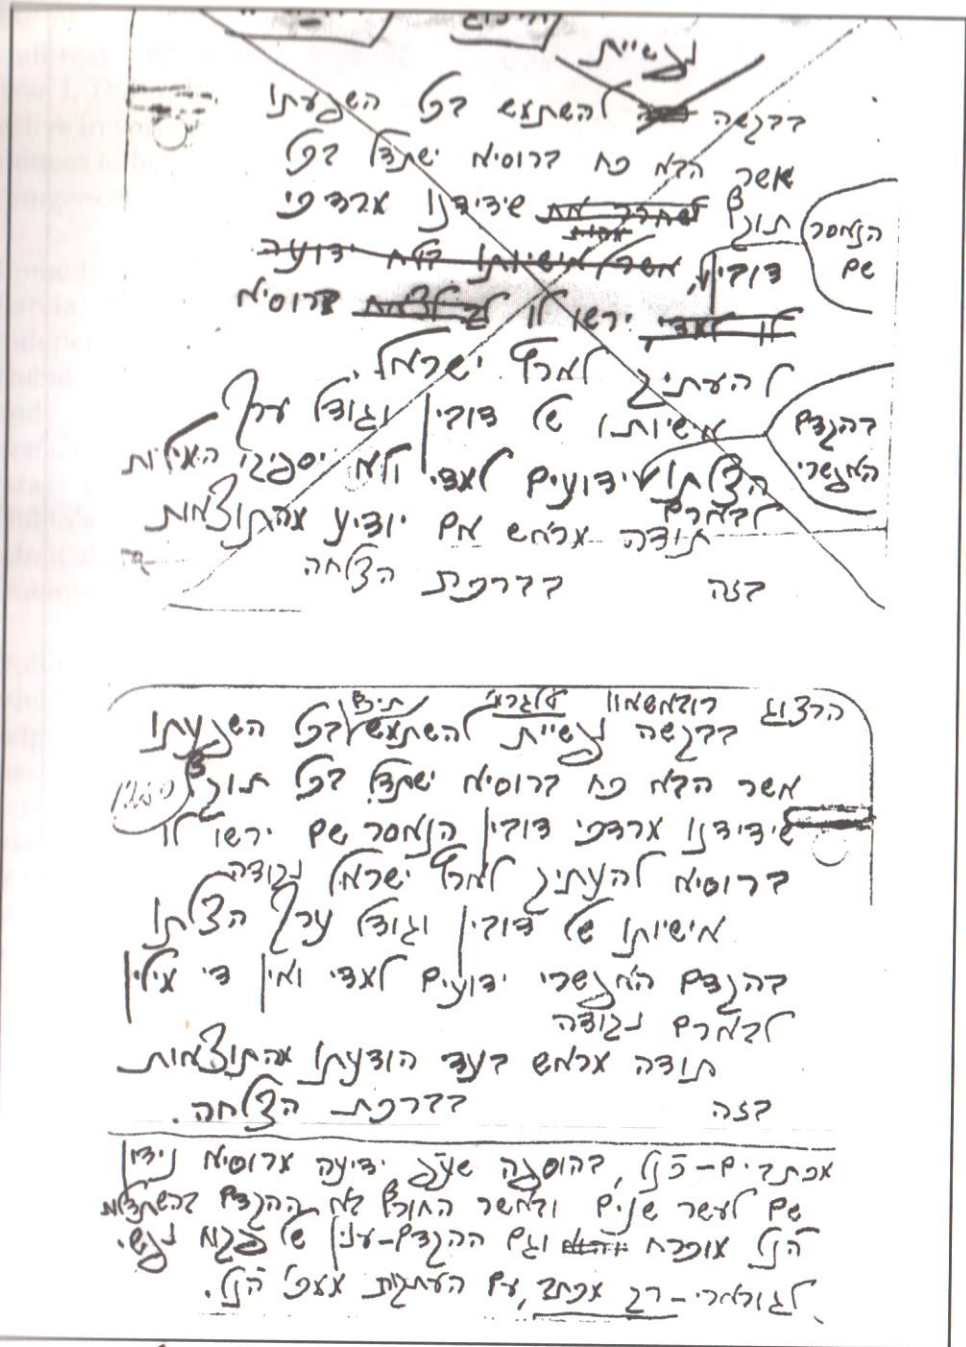 נפשיית
בבקשה להשתמש בכל השפעתו
אשר הבא כח ברוסיא ישתדל בכל
תוקף לשחרר את שידידנו מרדכי
הנאסר שם
דובין, אשר אישיותו בטח ידועה
לו למדי, ירשו לו לצאת ברוסיא
להעתיק לארץ ישראל.
אישיותו של דובין וגודל ערך
בהקדם האפשרי
הצלתו ידועים למדי ולא יספיקו המילות
לבארם
תודה מראש אם יודיע מהתוצאות
בזה בברכת הצלחה
הרצוג רובאשאוו
בבקשה נפשיית להשתמש בכל השפעתו
אשר הבא כח ברוסיא ישתדל בכל תוקף
שידידנו מרדכי דובין הנאסר שם ירשו לו
ברוסיא להעתיק לארץ ישראל נקודה
אישיותו של דובין וגודל ערך הצלתו
בהקדם האפשרי ידועים למדי ואין די מילין
לבארם נקודה
תודה מראש בעד הודעתו מהתוצאות
בזה בברכת הצלחה.
מכתבים-כנ"ל, בהוספה שע"פ ידיעה מרוסיא נידון
שם לעשר שנים ובאשר החורף בא ההקדם בהשתדלות
הנ"ל מוכרח והוא וגם ההקדם-ענין של פקוח נפש.
לגורארי - רק מכתב, עם העתקות ממכ' הנ"ל.